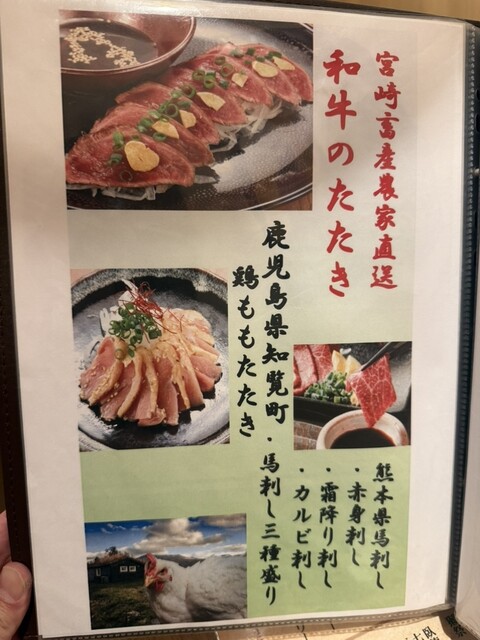 宮崎富産農家直送
和牛のたたき
鹿児島県知覧町
鶏ももたたき
・馬刺し三種盛り
熊本県馬刺し
・赤身刺し
・霜降り刺し
・カルビ刺し